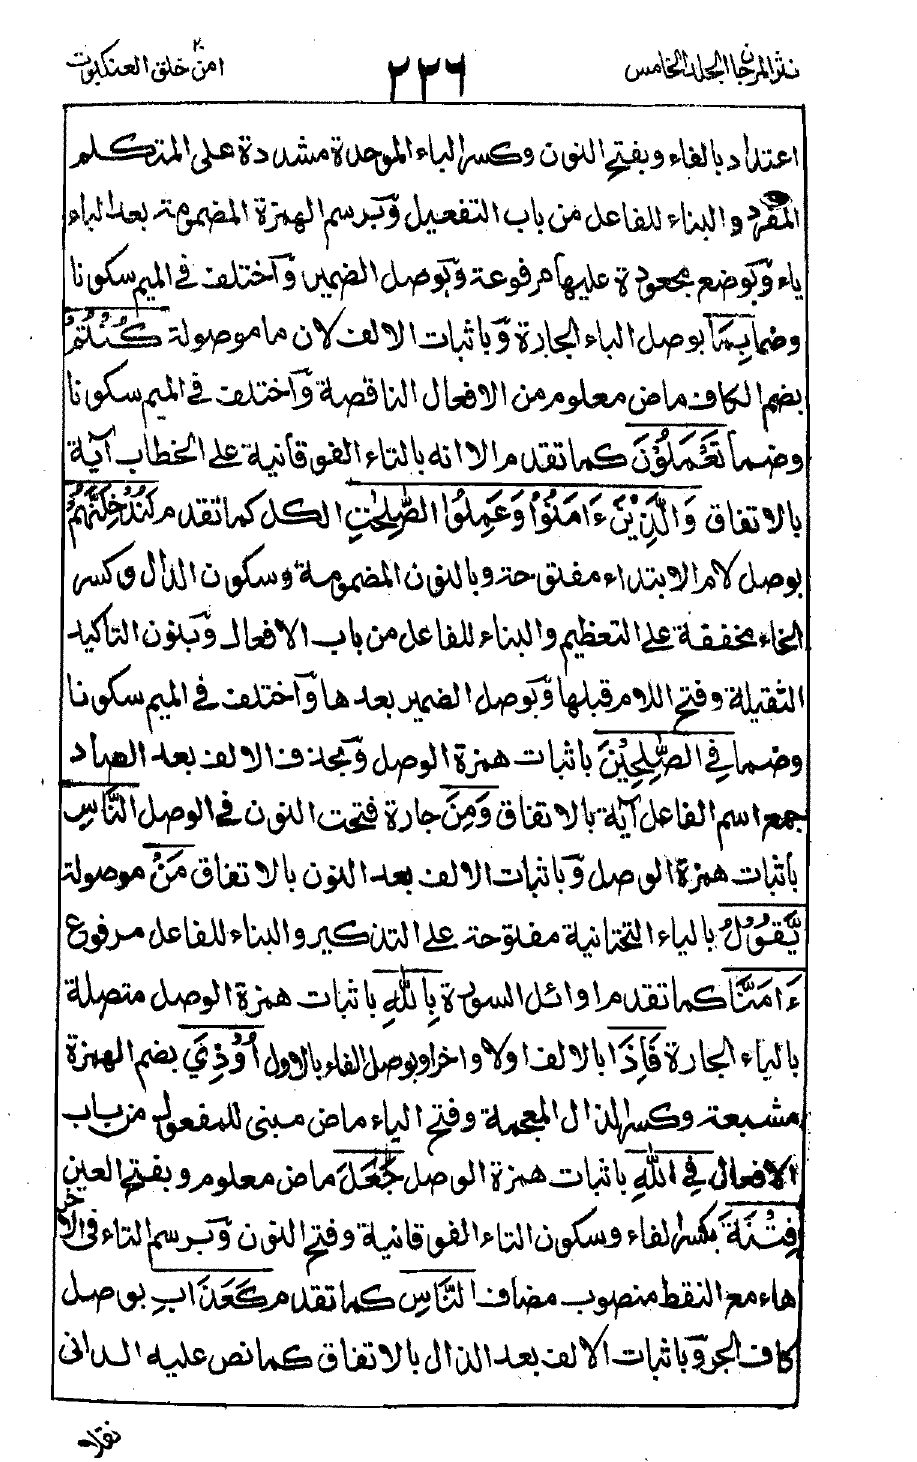 نثر المرجان الجلد الخامس ٢٢٦ امن خلق ٢٠ العنكبوت
اعتداد بالفاء وبفتح النون وكسر الباء الموحدة مشددة على المتكلم
المفرد والبناء للفاعل من باب التفعيل وَبرسم الهمزة المضمومة بعد الباء
ياء وَبوضع مجعودة عليها مرفوعة وَبوصل الضمير وَاختلف فى الميم سكونا
وضما بِمَا بوصل الباء الجارة وَباثبات الالف لان ما موصولة كُنْتُمْ
بضم الكاف ماض معلوم من الافعال الناقصة وَاختلف فى الميم سكونا
وضما تَعْمَلُوْنَ كما تقدم الا انه بالتاء الفوقانية على الخطاب آية
بالاتفاق وَالَّذِيْنَ ءَامَنُوْا وَعَمِلُوا الصّٰلِحٰتِ الكل كما تقدم لَنُدْخِلَنَّهُمْ
بوصل لام الابتداء مفتوحة وبالنون المضمومة وسكون الدال وكسر
الخاء مخففة على التعظيم والبناء للفاعل من باب الافعال وَبنون التاكيد
الثقيلة وفتح اللام قبلها وَبوصل الضمير بعدها وَاختلف فى الميم سكونا
وضما فِي الصّٰلِحِيْنَ باثبات همزة الوصل وَبحذف الالف بعد الصاد
جمع اسم الفاعل آية بالاتفاق وَمِنَ جارة فتحت النون فى الوصل النَّاسِ
باثبات همزة الوصل وَباثبات الالف بعد النون بالاتفاق مَنْ موصولة
يَّقُوْلُ بالياء التحتانية مفتوحة على التذكير والبناء للفاعل مرفوع
ءَامَنَّا كما تقدم اوائل السورة بِاللّٰهِ باثبات همزة الوصل متصلة
بالباء الجارة فَاِذَا بالالف اولا واخرا وبوصل الفاء بالاول اُوْذِيَ بضم الهمزة
مشبعة وكسر الذال المعجمة وفتح الياء ماض مبنى للمفعول من باب
الافعال فِي اللّٰهِ باثبات همزة الوصل جَعَلَ ماض معلوم وبفتح العين
فِتْنَةَ بكسر الفاء وسكون التاء الفوقانية وفتح النون وَبرسم التاء فى الاخر
هاء مع النقط منصوب مضاف النَّاسِ كما تقدم كَعَذَابِ بوصل
كاف الجر وَباثبات الالف بعد الذال بالاتفاق كما نص عليه الدانى
نقلا